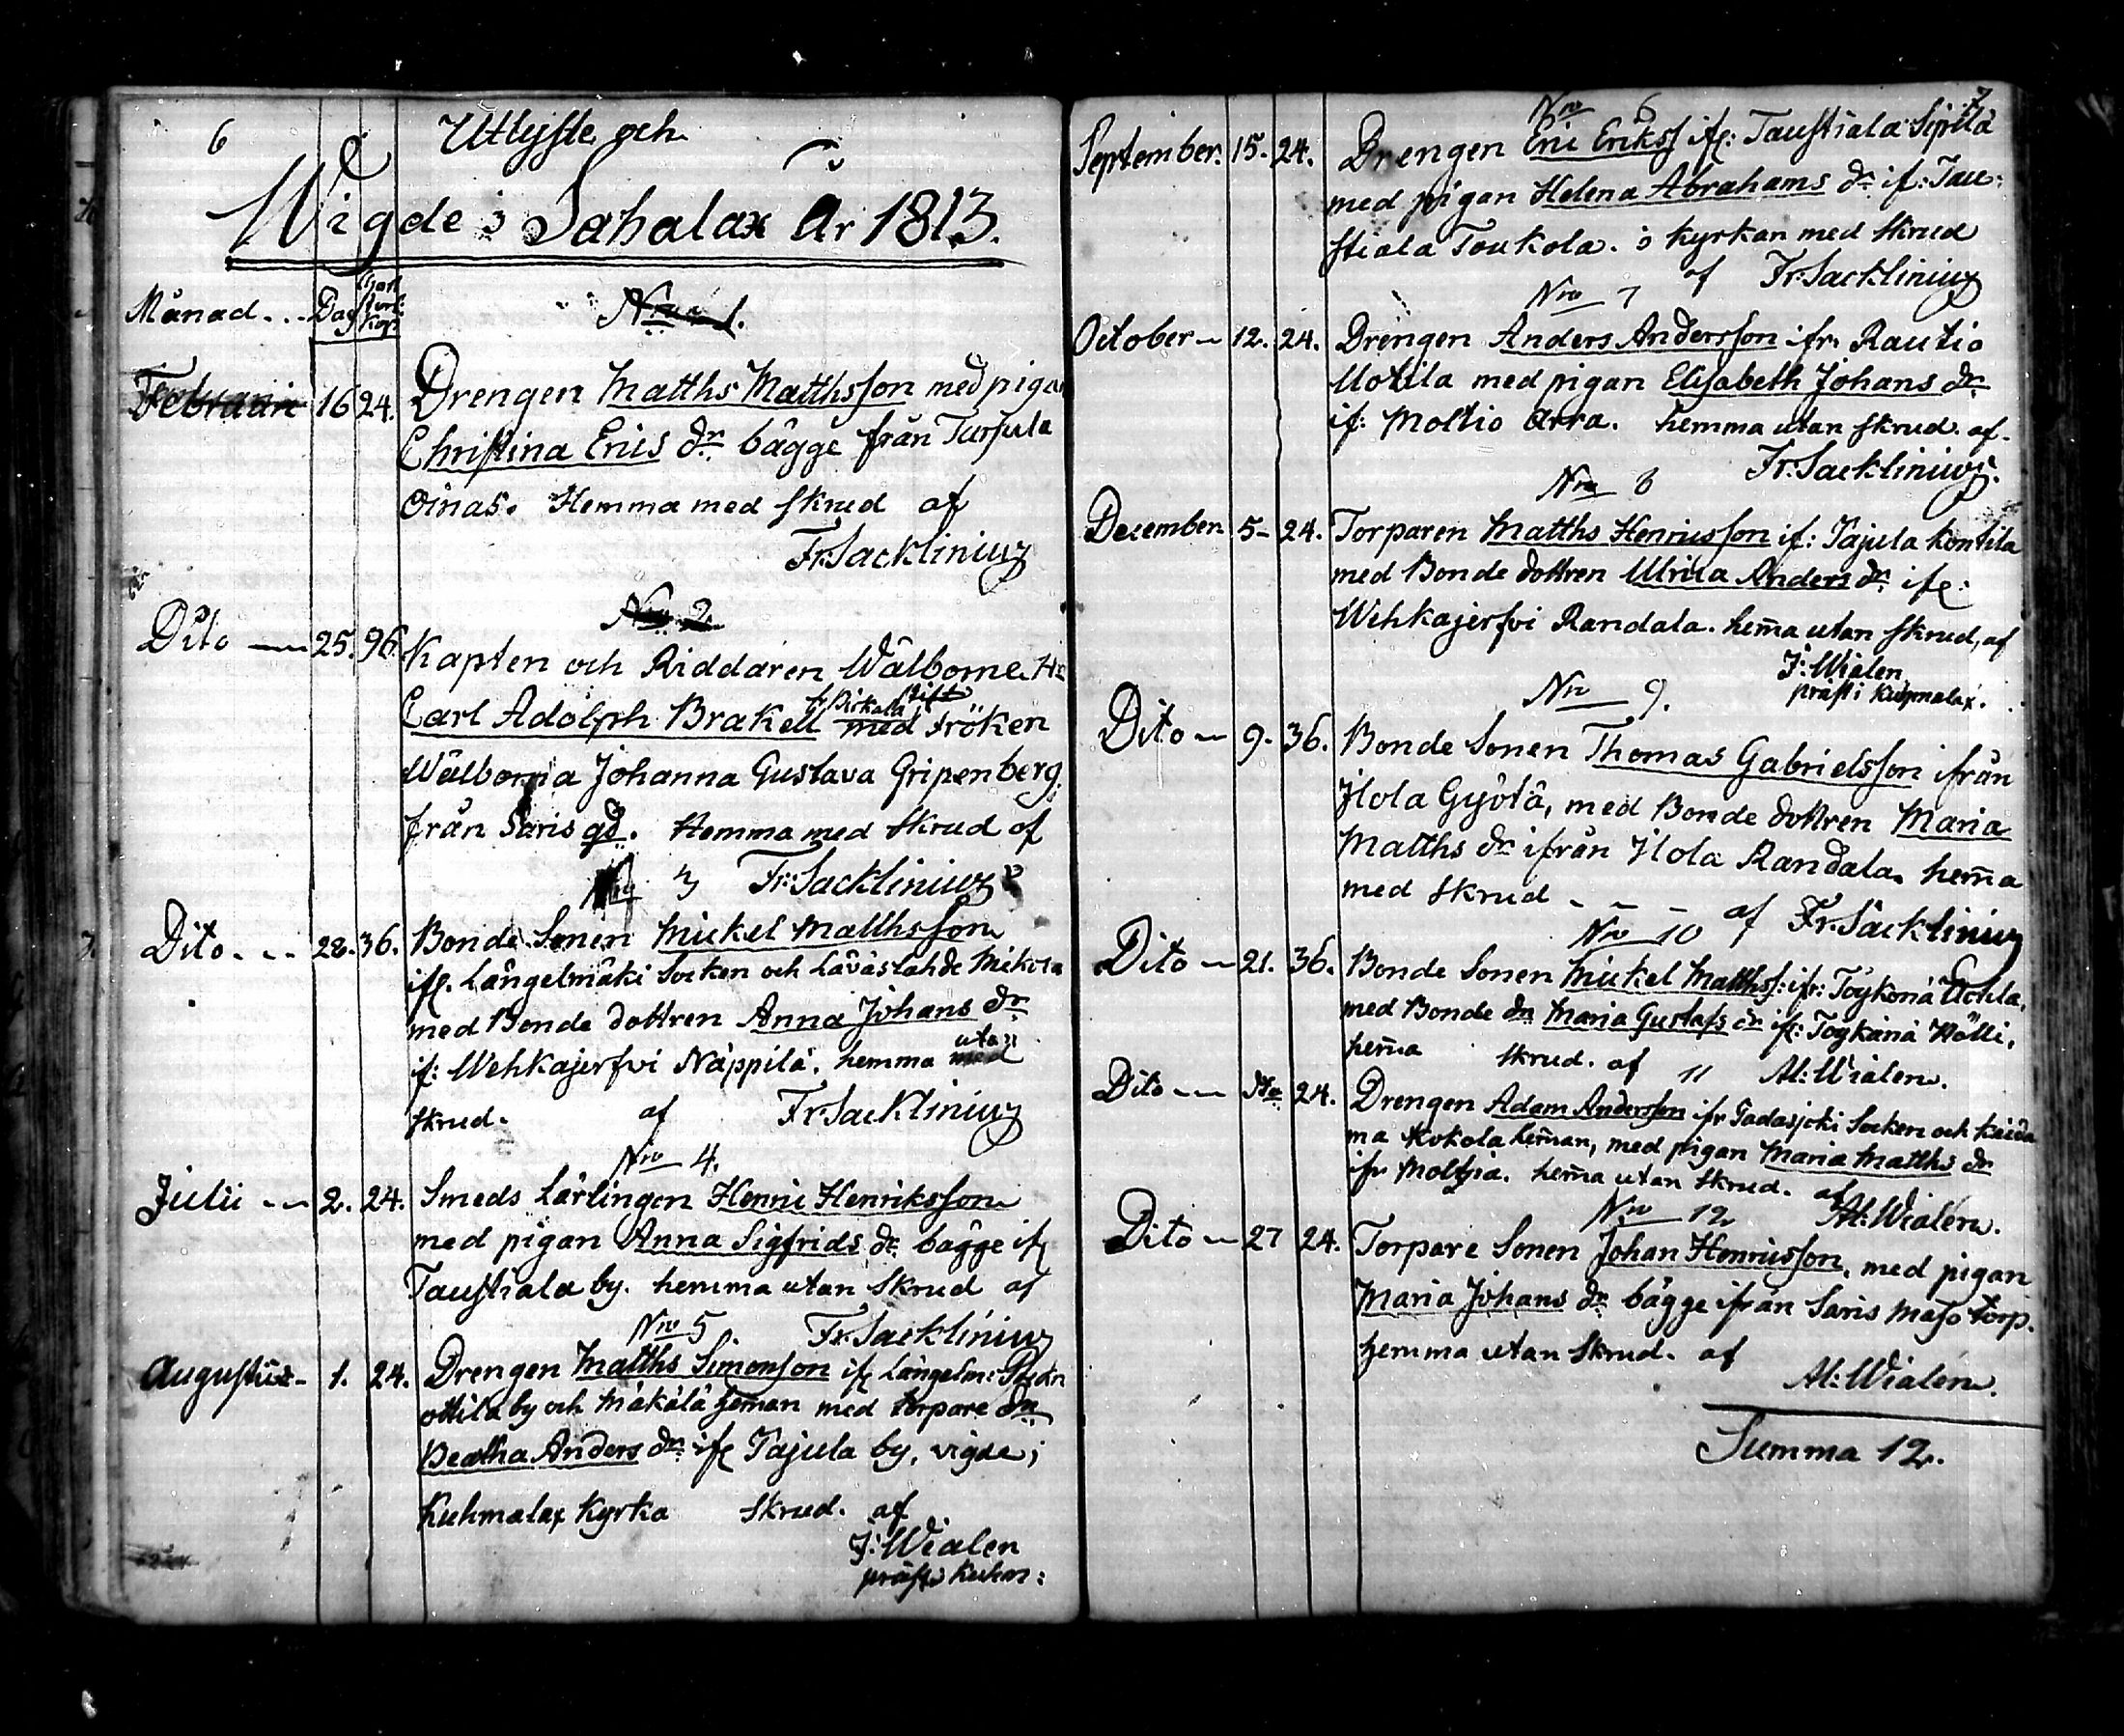 6
Utlyste och
Wigde i Sahalax År 1813.
Månad... Dag
Nro 1.
Februari 16 24. Drengen Matths Matthsson med pigan
Christina Erics dr. bägge från Tursula
Oinas. Hemma med skrud af
Fr: Sacklinius
Nro 2
Dito — 25. 96. Kapten och Riddaren Wälborne Hr
Carl Adolph Brakell med Fröken
Wälborna Johanna Gustava Gripenberg
från Saris gd. Hemma med skrud af
3 Fr: Sacklinius
Dito... 28. 36. Bonde Sonen Mickel Matthsson
ifr. Långelmäki Socken och Läväslahde Mikola
med Bonde dottren Anna Johans dr
if: Wehkajerfvi Näppilä. hemma med utan
skrud. af Fr: Sacklinius
Nro 4.
Julii — 2. 24. Smeds Lärlingen Henric Henriksson
med pigan Anna Sigfrids dr. bägge ifr
Taustiala by. hemma utan skrud af
Nro 5. Fr: Sacklinius
Augustus - 1. 24. Drengen Matths Simonsson ifr Långelm:
ottila by och Mäkälä heman med torpare dr
Beatha Anders dr. ifr Tajula by, vigde i
Kuhmalax Kyrka skrud. af
J: Wialen
präst i Kuhm:
7
Nro 6
September. 15. 24. Drengen Eric Erikss ifr: Taustiala Sipilä
med pigan Helena Abrahams dr. if: Tau-
stiala Toukola. i Kyrkan med skrud
af Fr: Sacklinius
Nro 7
October — 12. 24. Drengen Anders Andersson ifr. Rautio
Uotila med pigan Elisabeth Johans dr
if: Moltio Arra. hemma utan skrud. af
Fr: Sacklinius.
Nro 8
December. 5 - 24. Torparen Matths Henricsson if: Tajula Kontila
med Bonde dottren Ulrica Anders dr. ifr:
Wehkajerfvi Randala. hem̃a utan skrud, af
J: Wialen
präst i Kuhmalax.
Nro 9.
Dito — 9. 36. Bonde Sonen Thomas Gabrielsson ifrån
Ilola Gyötä, med Bonde dottren Maria
Matths dr ifrån Ilola Randala. hem̃a
med skrud - - - af Fr: Sacklinius
Nro 10
Dito — 21. 36. Bonde Sonen Mickel Matthss: ifr: Töykänä Uotila,
med Bonde dr Maria Gustafs dr ifr: Toykänä Hölli,
hem̃a skrud. af Al: Wialen.
11
Dito — Dto 24. Drengen Adam Andersson ifr Padasjoki Socken och Kaida
ma Kokola hem̃an, med pigan Maria Matths dr
ifr Moltsia. hem̃a utan skrud. af
Nro 12 Al: Wialen.
Dito — 27 24. Torpare Sonen Johan Henricsson, med pigan
Maria Johans dr bägge ifrån Saris Maso torp.
hemma utan skrud. af
Al: Wialen.
Summa 12.